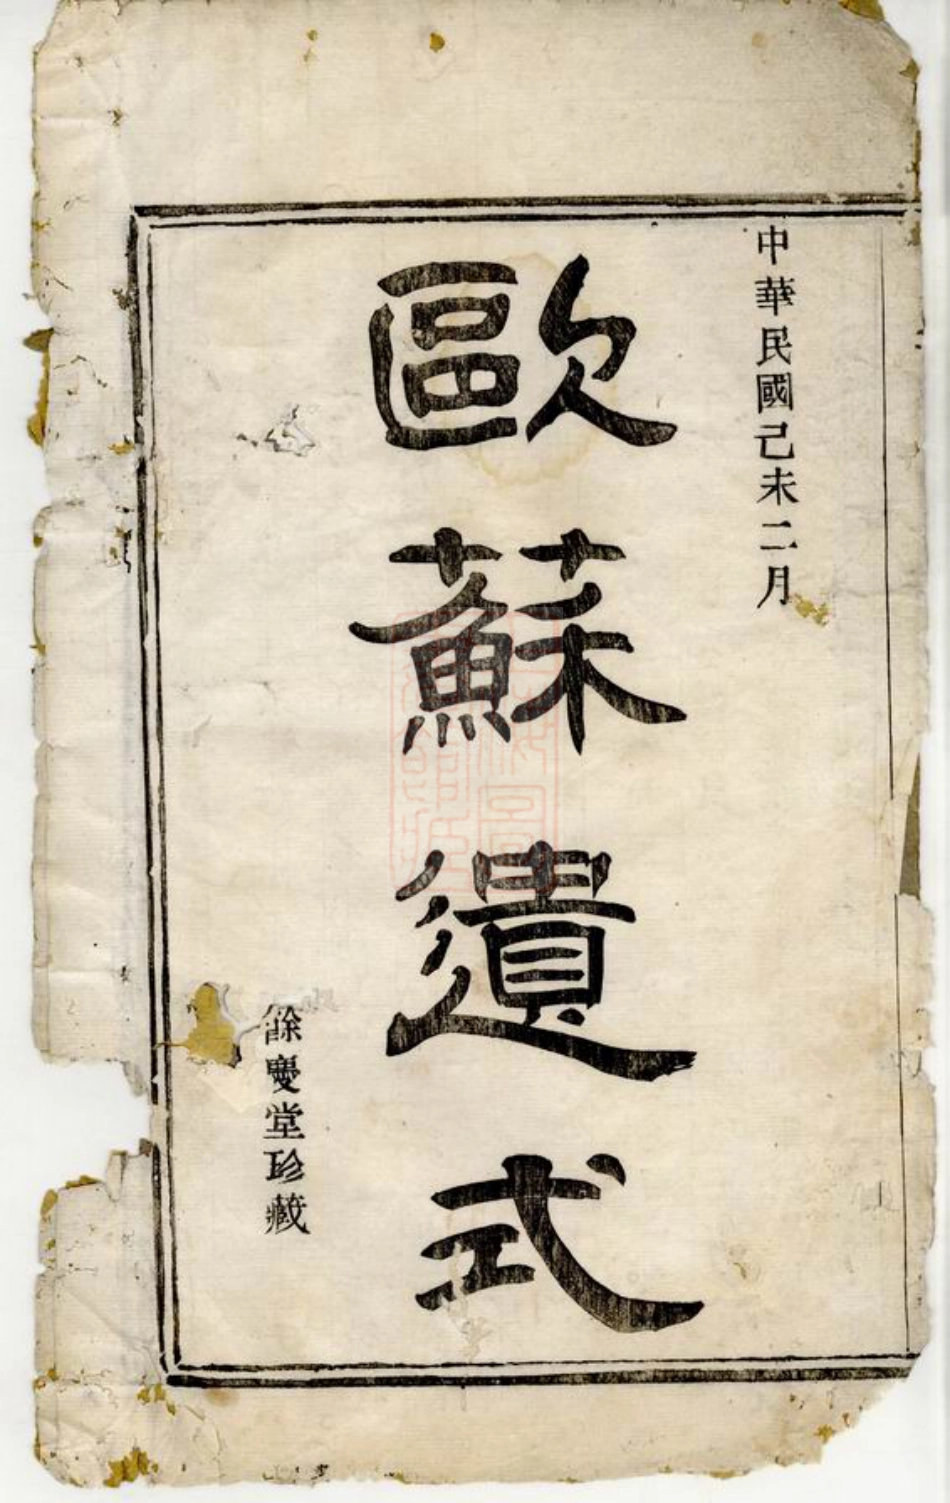 中華民國己未二月
歐蘇遺式
餘慶堂珍藏